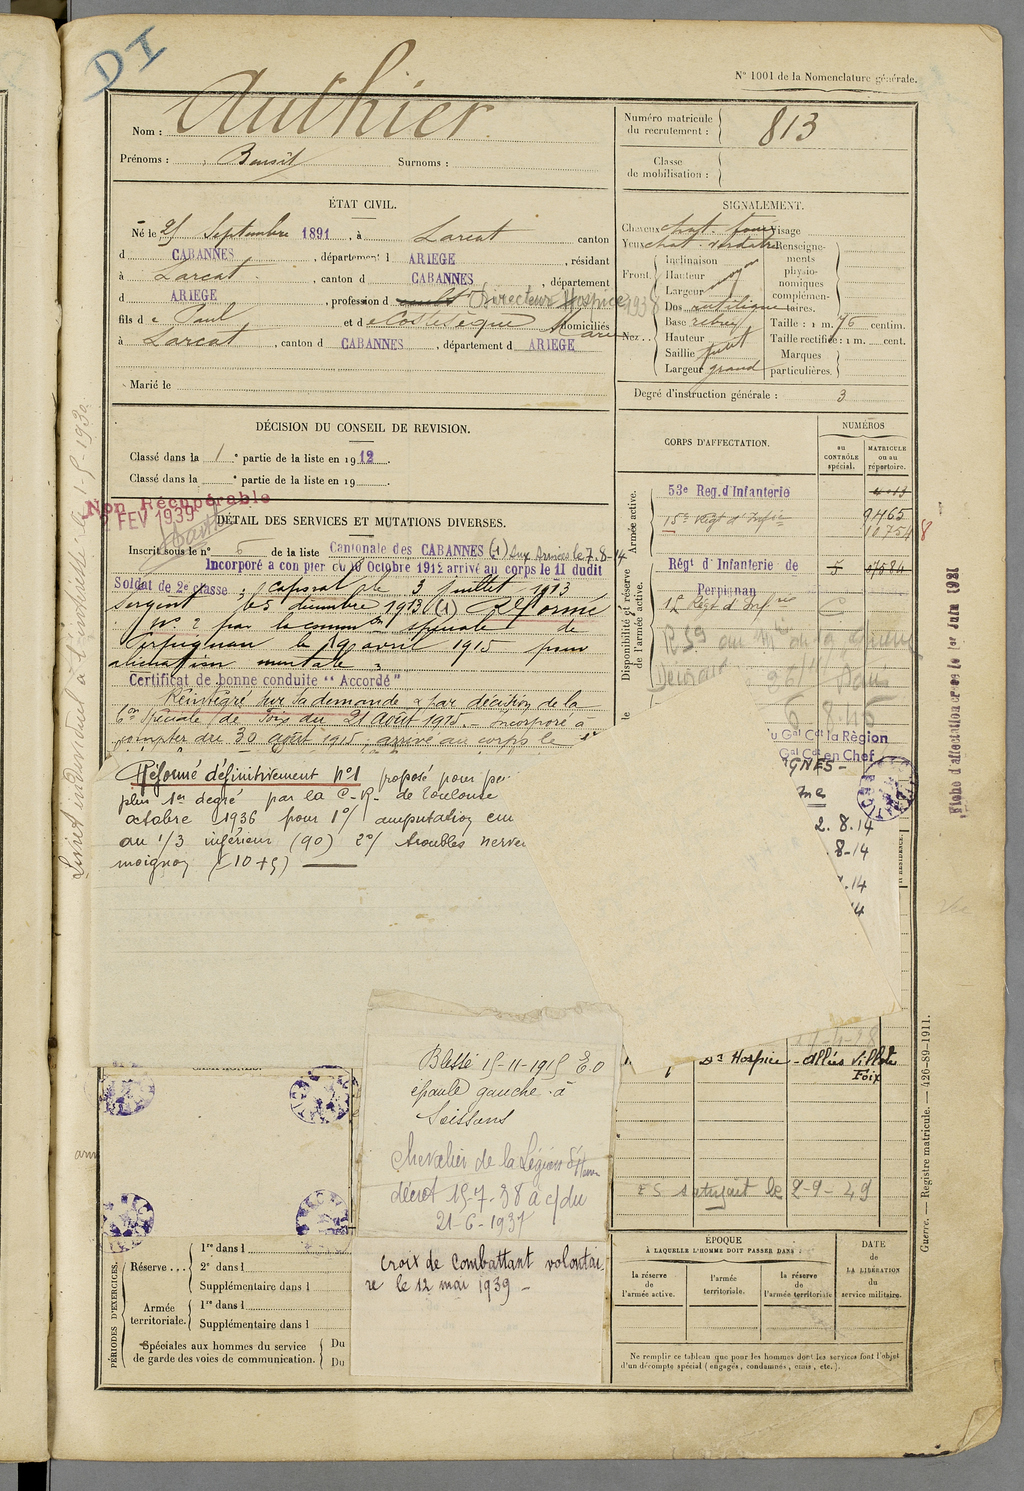 DI
N° 1001 de la Nomenclature générale.
Nom : Authier
Prénoms : Benoît Surnoms :
Numéro matricule du recrutement : 813
Classe de mobilisation :
ÉTAT CIVIL.
Né le 25 Septembre 1891, à Larcat canton
d CABANNES, département d ARIEGE, résidant
à Larcat, canton d CABANNES, département
d ARIEGE, profession d Directeur Hospice 1938
fils de Paul et de Costesèque Marie domiciliés
à Larcat, canton d CABANNES, département d ARIEGE
Marié le
SIGNALEMENT.
Cheveux chat. foncé Visage
Yeux chat. verdâtre Renseignements physionomiques complémentaires.
Front Inclinaison
Hauteur moyen
Largeur
Nez Dos rectiligne
Base
Hauteur
Saillie petit
Largeur grand
Taille : 1 m. 76 centim.
Taille rectifiée : 1 m. cent.
Marques particulières.
Degré d'instruction générale : 3
DÉCISION DU CONSEIL DE REVISION.
Classé dans la 1re partie de la liste en 1912
Classé dans la e partie de la liste en 19
Non Récupérable
FEV 1939
DÉTAIL DES SERVICES ET MUTATIONS DIVERSES.
Inscrit sous le n° 6 de la liste Cantonale des CABANNES (1) Aux Armées le 7.8.14
Incorporé à compter du 10 Octobre 1912 arrivé au corps le 11 dudit
Soldat de 2e classe ; caporal le 3 juillet 1913
Sergent le 5 décembre 1913 (1) Réformé
N° 2 par la common spéciale de
Perpignan le 19 avril 1915 pour
aliénation mentale.
Certificat de bonne conduite "Accordé"
Réintégré sur sa demande par décision de la
Con Spéciale de Foix du 21 août 1915. Incorporé à
compter du 30 août 1915, arrivé au corps le
Réformé définitivement n°1 proposé pour
plus 1er degré par la C.R. de Toulouse
octobre 1936 pour 1°/ amputation
au 1/3 inférieur (90) 2°/ troubles
moignon (10+5)
CORPS D'AFFECTATION.
NUMÉROS
au CONTRÔLE spécial.
MATRICULE ou au répertoire.
Armée active.
53e Reg. d'Infanterie
15e Régt d'Infrie
9465
10754
Disponibilité et réserve de l'armée active.
Régt d'Infanterie de Perpignan 5
12 Régt d'Infrie
6-8-45
u Gal Cdt la Région
Gal Cdt en Chef
2.8.14
8-14
.14
Hospice - Allées Villote
Foix
ES satisfait le 2-9-49
Blessé 15-11-1915 E.O
épaule gauche à
Soissons
Chevalier de la Légion d'Honn
décret 15-7-38 à c/du
21-6-1937
Croix de combattant volontai
re le 12 mai 1939 -
PÉRIODES D'EXERCICES.
Réserve... 1re dans l
2e dans l
Supplémentaire dans l
Armée territoriale. 1re dans l
Supplémentaire dans l
Spéciales aux hommes du service de garde des voies de communication. Du
Du
ÉPOQUE
À LAQUELLE L'HOMME DOIT PASSER DANS :
la réserve de l'armée active.
l'armée territoriale.
la réserve de l'armée territoriale
DATE de LA LIBÉRATION du service militaire.
Ne remplir ce tableau que pour les hommes dont les services font l'objet
d'un décompte spécial (engagés, condamnés, omis, etc.).
Guerre. — Registre matricule. — 426-89-1911.
Fiche d'affectation créée le 1er Juin 1921